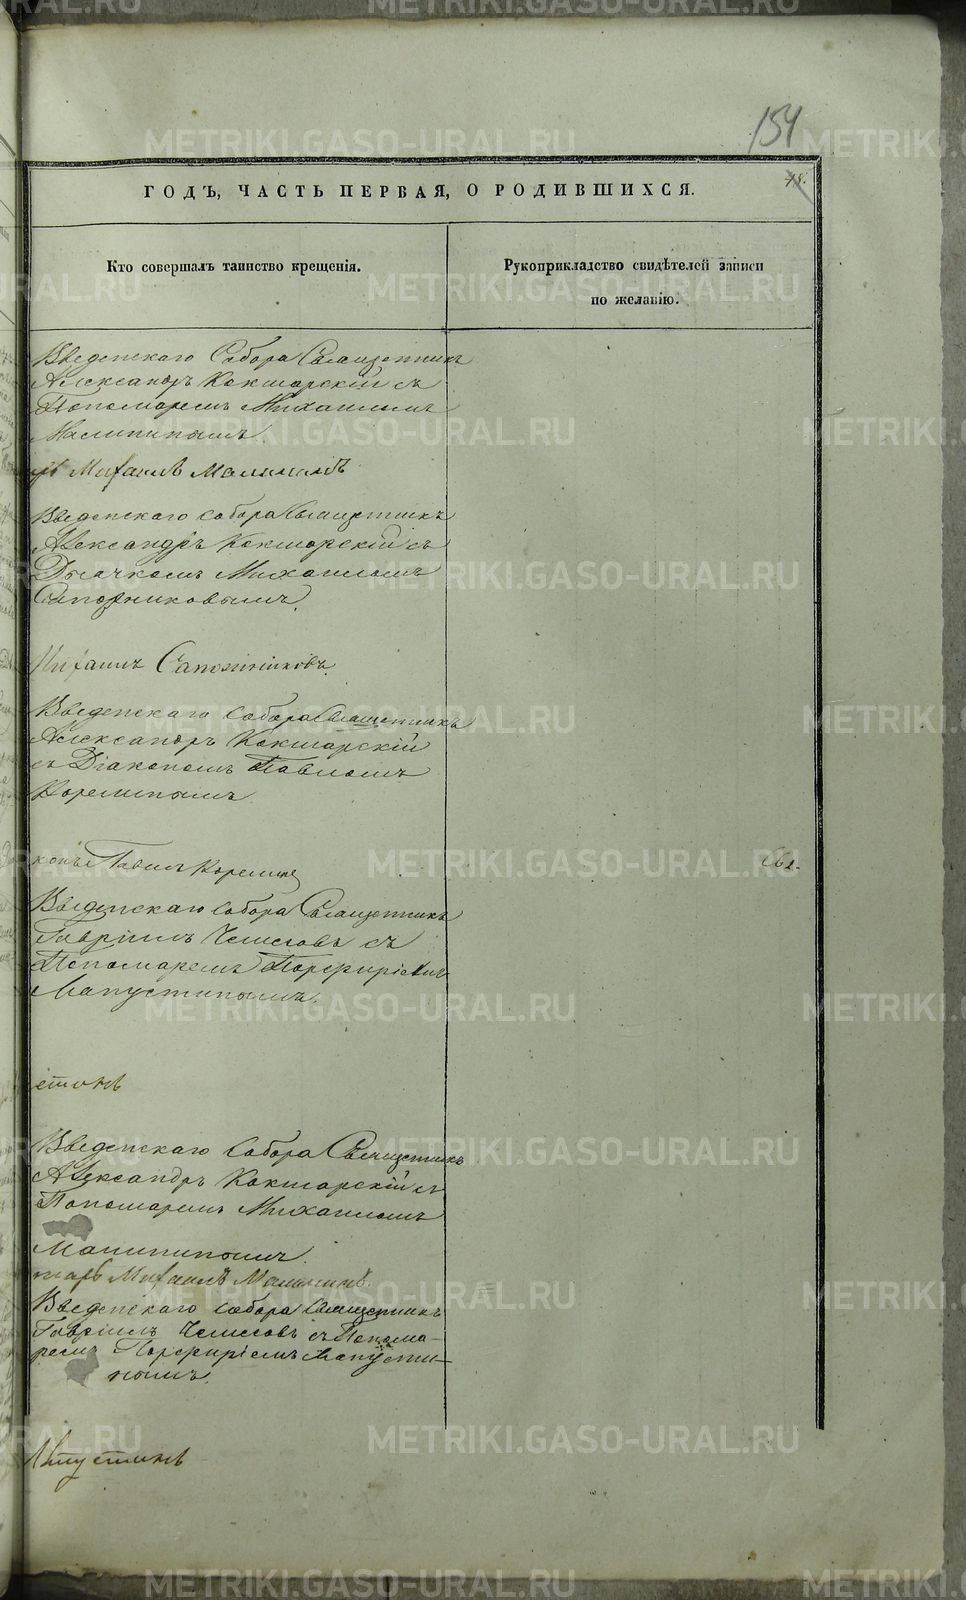 154
48.
ГОДЪ, ЧАСТЬ ПЕРВАЯ, О РОДИВШИХСЯ.
Кто совершалъ таинство крещенія.
Рукоприкладство свидѣтелей записи
по желанію.
Введенскаго Собора Священникъ
Александръ Кокшарскій съ
Пономаремъ Михаиломъ
Малининымъ.
Михаилъ Малининъ
Введенскаго собора Священникъ
Александръ Кокшарскій съ
Дьячкомъ Михаиломъ
Сапожниковымъ.
Михаилъ Сапожниковъ.
Введенскаго собора Священникъ
Александръ Кокшарскій
съ Діакономъ Павломъ
Корелинымъ
конъ Павелъ Корелинъ
Введенскаго собора Священникъ
Гавріилъ Чемесовъ съ
Пономаремъ Порфиріемъ
Лапустинымъ.
стинъ
Введенскаго Собора Священникъ
Александръ Кокшарскій съ
Пономаремъ Михаиломъ
Малининымъ.
марь Михаилъ Малининъ.
Введенскаго собора Священникъ
Гавріилъ Чемесовъ съ Понома-
ремъ Порфиріемъ Лапусти-
нымъ.
Лапустинъ
METRIKI.GASO-URAL.RU